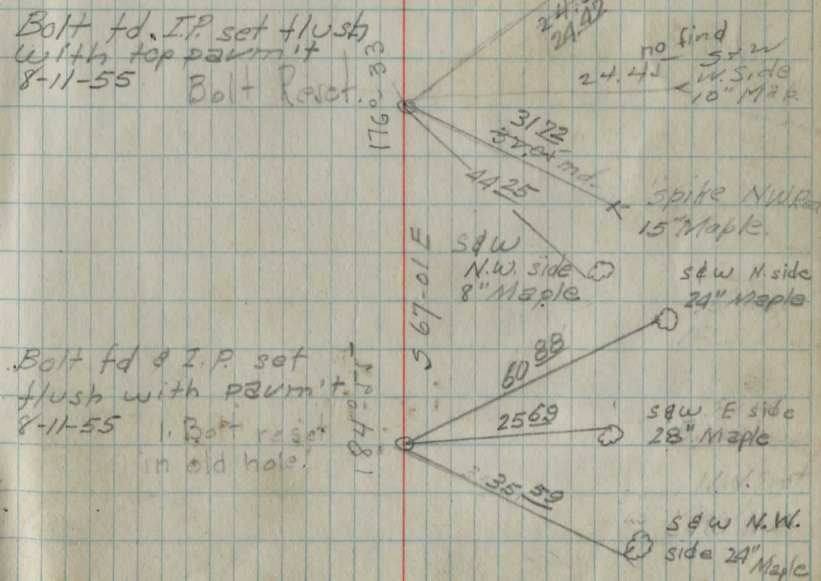 Bolt fd. I.P. set flush
with top pavm't
8-11-55
Bolt Reset.
176°-33
24.42
no find
24.45
S&W
W. Side
10" Map
3172
md.
4425
Spike NW Roo
15" Maple.
S&W
N.W. side
8" Maple
S 67-01 E
S&W N. side
24" Maple
60 88
Bolt fd & I.P. set
flush with pavm't.
8-11-55
1. Bolt reset
in old hole.
184°-55
2569
S&W E side
28" Maple
35.59
S&W N.W.
side 24" Maple